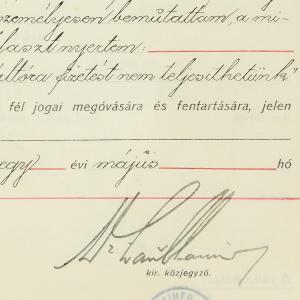 személyesen bemutattam, a mi-
laszt nyertem:
ultóra fizetést nem teljesíthetünk"
fél jogai megóvására és fentartására, jelen
egy évi május hó
Dr
kir. közjegyző.